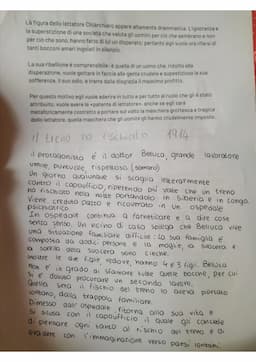 La figura dello iettatore Chiàrchiaro appare altamente drammatica. L'ignoranza e
la superstizione di una società che valuta gli uomini per ciò che sembrano e non
per ciò che sono, hanno fatto di lui un disperato; pertanto egli vuole ora rifarsi di
tanti bocconi amari ingoiati in silenzio.
La sua ribellione è comprensibile: è quella di un uomo che, ridotto alla
disperazione, vuole gettare in faccia alla gente crudele e superstiziosa le sue
sofferenze. Il suo odio, e trarre dalla disgrazia il massimo profitto.
Per questo motivo egli vuole aderire in tutto e per tutto al ruolo che gli è stato
attribuito; vuole avere la «patente di iettatore», anche se egli sarà
metaforicamente costretto a portare sul volto la maschera grottesca e tragica
dello iettatore, quella maschera che gli uomini gli hanno crudelmente imposto.
Il treno ha fischiato 1914
il protagonista è il dottor Belluca, grande lavoratore
umile, puntuale, rispettoso (somaro)
Un giorno qualunque si scaglia
contro il capoufficio, ripetendo più volte che un treno
ha fischiato nella notte portandolo in Siberia e in Congo.
Viene creduto pazzo e ricoverato in un ospedale
psichiatrico
In ospedale continua a farneticare e a dire cose
senza senso. Un vicino di casa spiega che Belluca vive
una situazione familiare difficile: la sua famiglia è
composta da dodici persone e la moglie, la suocera e
la sorella della suocera sono cieche.
Inoltre le due figlie vedove hanno 4 e 3 figli. Belluca
non è in grado di sfamare tutte quelle bocche, per cui
si è dovuto procurare un secondo lavoro.
Quella sera il fischio del treno lo aveva portato
lontano, dalla trappola familiare.
Dimesso dall'ospedale ritorna alla sua vita e
si scusa con il capoufficio il quale gli concede
di pensare ogni tanto al fischio del treno e di
evadere con l'immaginazione verso paesi lontani